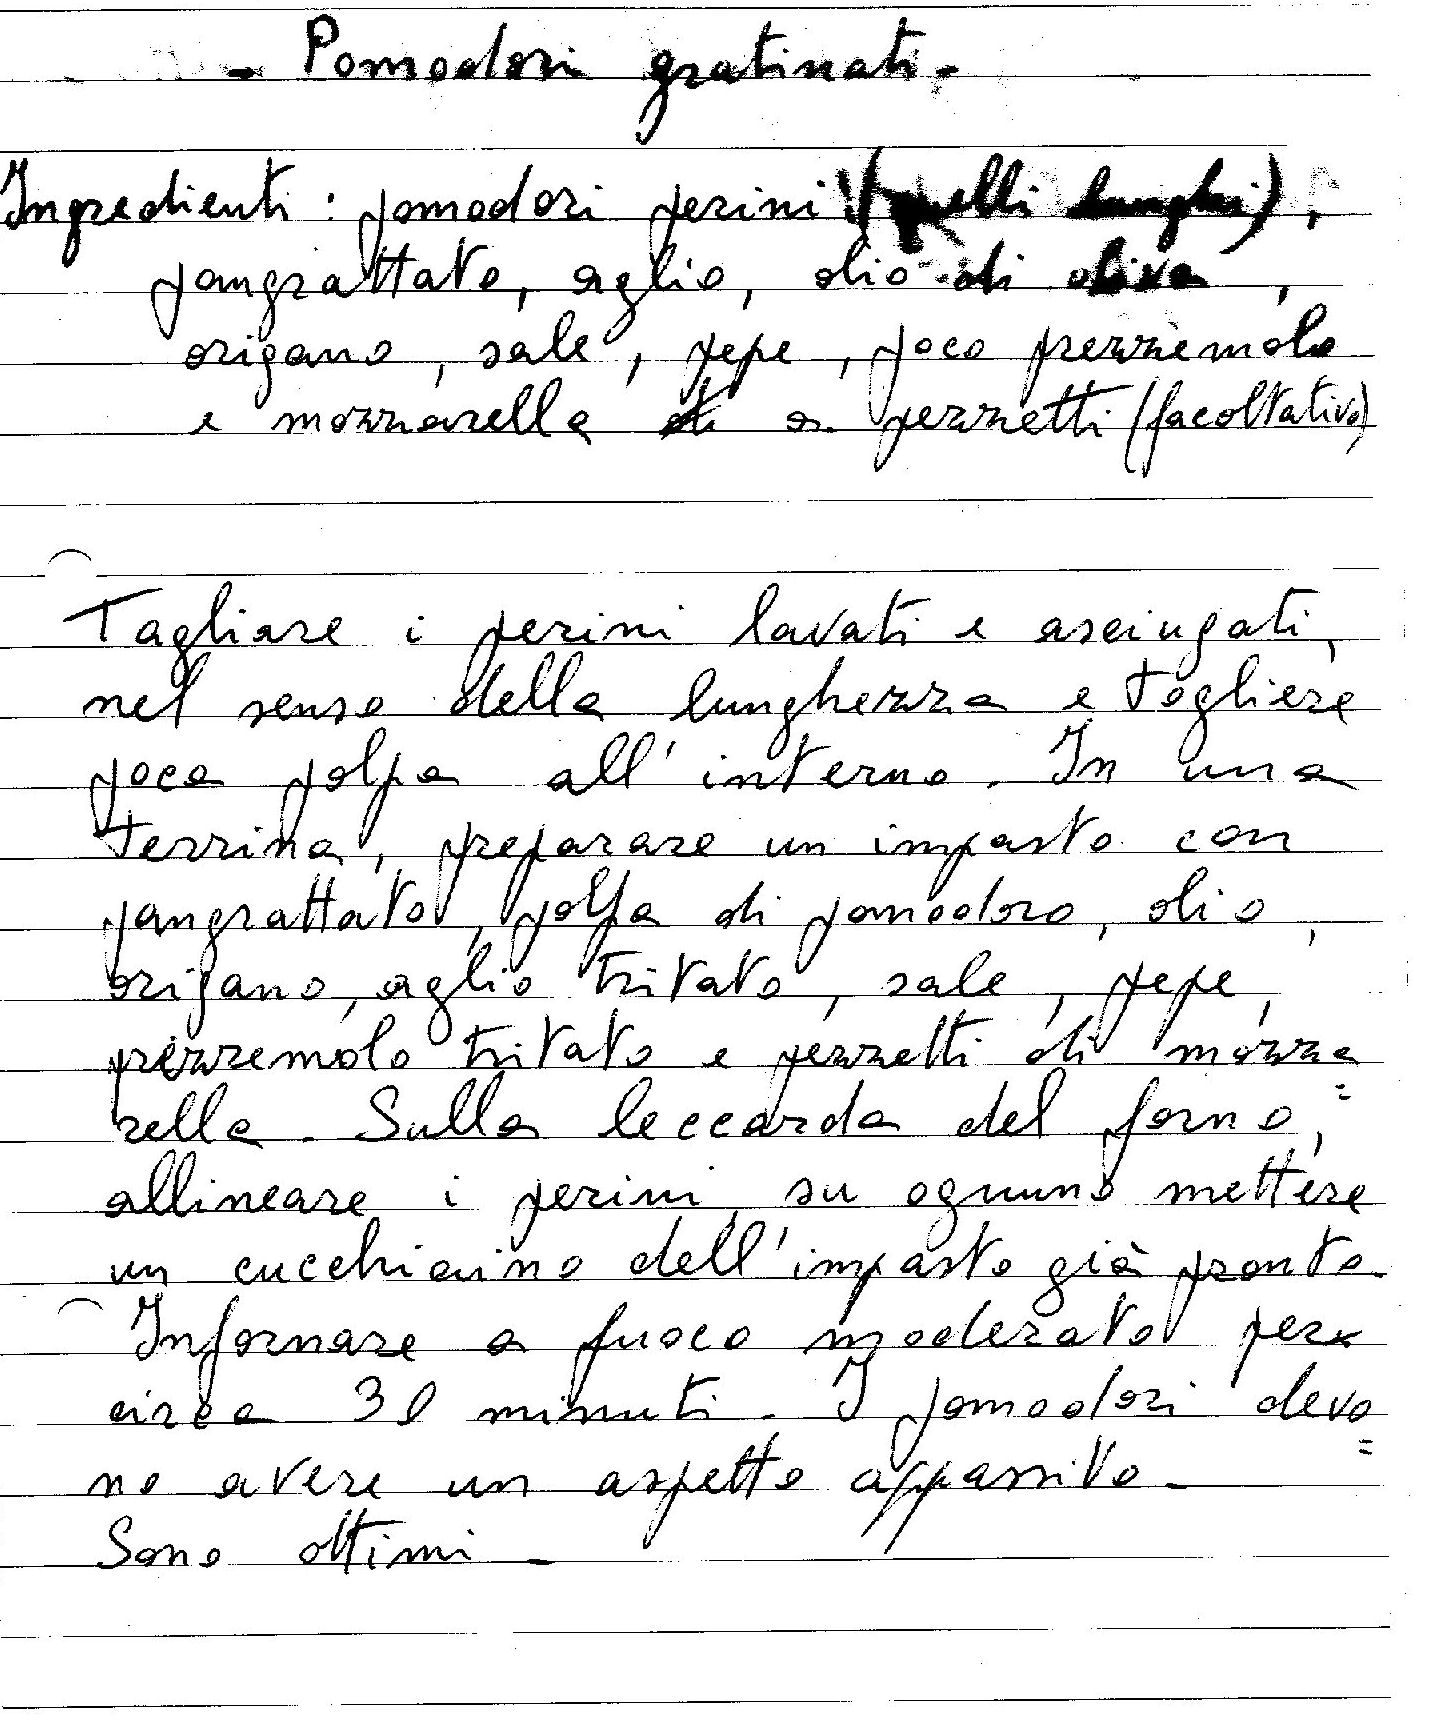 - Pomodori gratinati -
Ingredienti : pomodori perini (quelli lunghi),
pangrattato, aglio, olio di oliva,
origano, sale, pepe, poco prezzemolo
e mozzarella a pezzetti (facoltativo)
Tagliare i perini lavati e asciugati,
nel senso della lunghezza e togliere
poca polpa all'interno. In una
terrina, preparare un impasto con
pangrattato, polpa di pomodoro, olio,
origano, aglio tritato, sale, pepe,
prezzemolo tritato e pezzetti di mozza=
rella. Sulla leccarda del forno,
allineare i perini, su ognuno mettere
un cucchiaino dell'impasto già pronto.
Infornare a fuoco moderato per
circa 30 minuti. I pomodori devo=
no avere un aspetto appassito -
Sono ottimi -